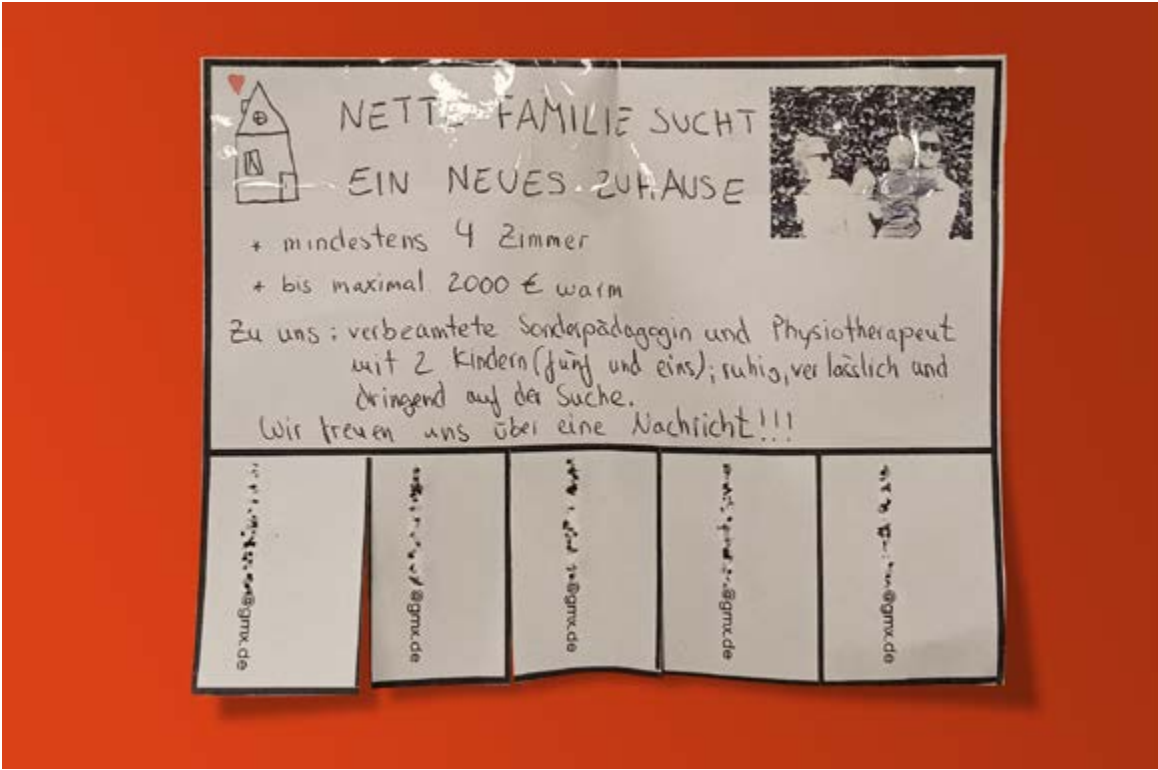 NETTE FAMILIE SUCHT
EIN NEUES ZUHAUSE
* mindestens 4 Zimmer
* bis maximal 2000 € warm
Zu uns: verbeamtete Sonderpädagogin und Physiotherapeut
mit 2 Kindern (fünf und eins); ruhig, verlässlich und
dringend auf der Suche.
Wir freuen uns über eine Nachricht!!!
@gmx.de
@gmx.de
@gmx.de
@gmx.de
@gmx.de